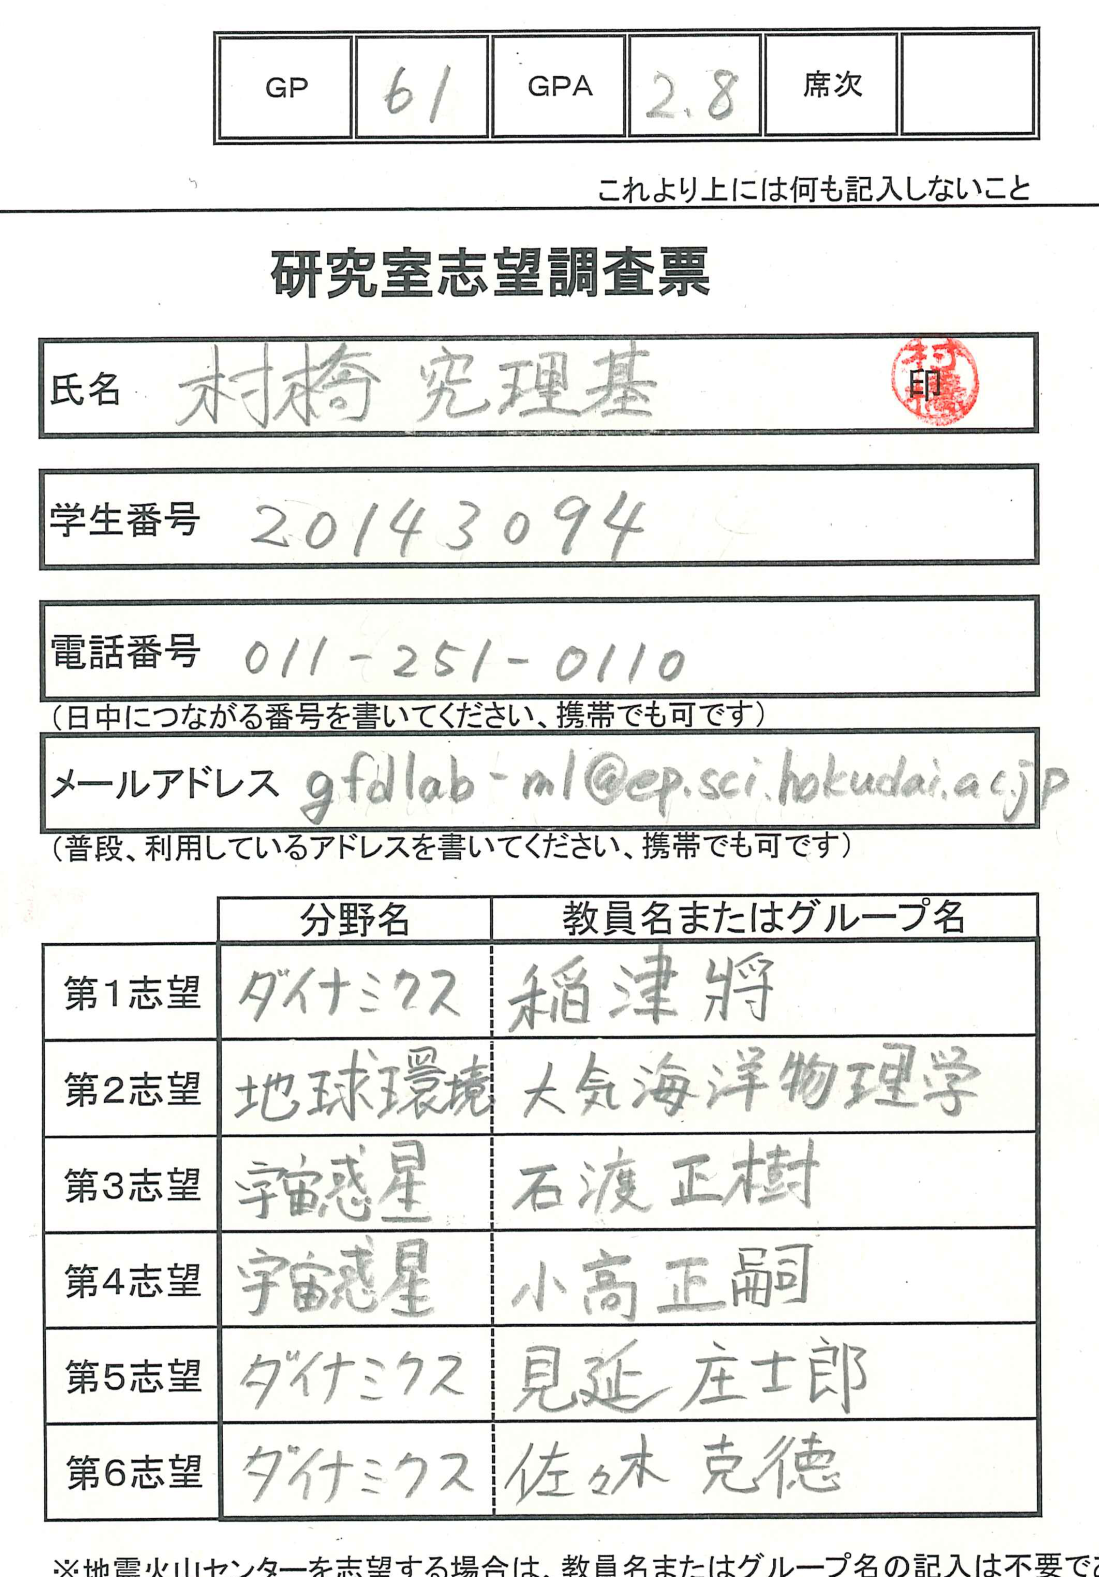 GP 61 GPA 2.8 席次
これより上には何も記入しないこと
研究室志望調査票
氏名 村橋 究理基 印
学生番号 20143094
電話番号 011-251-0110
（日中につながる番号を書いてください、携帯でも可です）
メールアドレス gfdlab-ml@ep.sci.hokudai.ac.jp
（普段、利用しているアドレスを書いてください、携帯でも可です）
分野名 教員名またはグループ名
第1志望 ダイナミクス 稲津 將
第2志望 地球環境 大気海洋物理学
第3志望 宇宙惑星 石渡 正樹
第4志望 宇宙惑星 小高 正嗣
第5志望 ダイナミクス 見延 庄士郎
第6志望 ダイナミクス 佐々木 克徳
※地震火山センターを志望する場合は、教員名またはグループ名の記入は不要であ